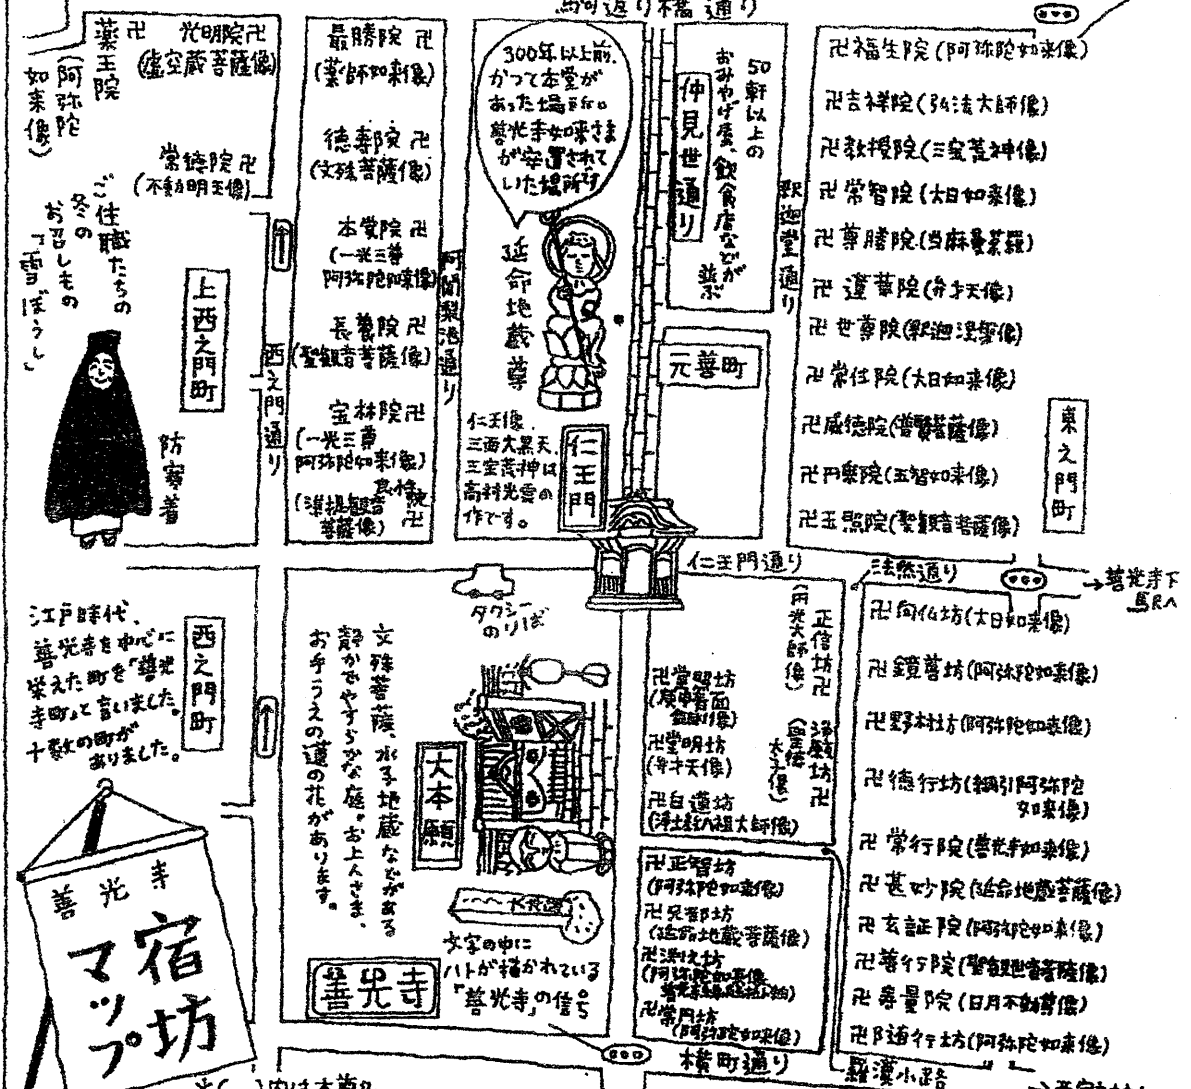 駒返り橋通り
卍 光明院卍
(虚空蔵菩薩像)
薬王院
(阿弥陀
如来像)
常徳院卍
(不動明王像)
ご住職たちの
冬の
お召しもの
「雪ぼうし」
防寒着
上西之門町
西之門通り
最勝院 卍
(薬師如来像)
徳寿院 卍
(文殊菩薩像)
本覚院 卍
(一光三尊
阿弥陀如来像)
長養院 卍
(聖観音菩薩像)
宝林院卍
(一光三尊
阿弥陀如来像)
卍
(準提観音
菩薩像)
阿闍梨池通り
300年以上前、
かつて本堂が
あった場所。
善光寺如来さま
が安置されて
いた場所です
延命地蔵尊
仁王像、
三面大黒天、
三宝荒神は
高村光雲の
作です。
仁王門
50軒以上の
おみやげ屋、飲食店などが
並ぶ
仲見世通り
釈迦堂通り
元善町
卍福生院(阿弥陀如来像)
卍吉祥院(弘法大師像)
卍教授院(三宝荒神像)
卍常智院(大日如来像)
卍尊勝院(当麻曼荼羅)
卍蓮華院(弁才天像)
卍世尊院(釈迦涅槃像)
卍常住院(大日如来像)
卍威徳院(普賢菩薩像)
卍円乗院(五智如来像)
卍玉照院(聖観音菩薩像)
東之門町
仁王門通り
法然通り
→善光寺下
駅へ
江戸時代、
善光寺を中心に
栄えた町を「善光
寺町」と言いました。
十数の町が
ありました。
西之門町
タクシー
のりば
文殊菩薩、水子地蔵などがある
静かでやすらかな庭。お上人さま、
お手うえの蓮の花があります。
大本願
文字の中に
ハトが描かれている
「善光寺」の信号
善光寺
正信坊卍
(円光大師像)
淨願坊卍
(聖徳
太子像)
卍堂照坊
卍堂明坊
(弁才天像)
卍白蓮坊
卍正智坊
(阿弥陀如来像)
卍兄部坊
(延命地蔵菩薩像)
卍淵之坊
(阿弥陀如来像
卍常円坊
(阿弥陀如来像)
卍向仏坊(大日如来像)
卍鏡善坊(阿弥陀如来像)
卍野村坊(阿弥陀如来像)
卍徳行坊(綱引阿弥陀
如来像)
卍常行院(善光寺如来像)
卍甚妙院(延命地蔵菩薩像)
卍玄証院(阿弥陀如来像)
卍善行院(聖観世音菩薩像)
卍寿量院(日月不動尊像)
卍随行坊(阿弥陀如来像)
横町通り
羅漢小路
善光寺
宿坊
マップ